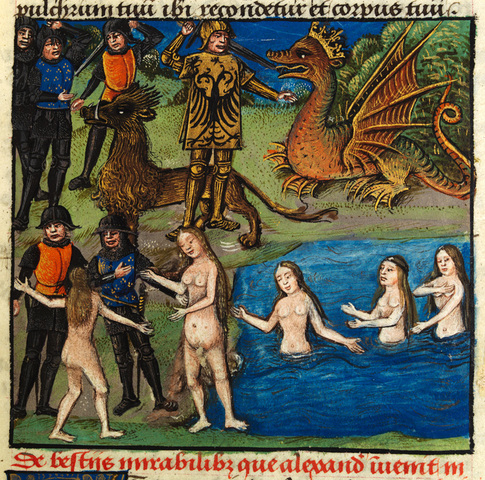 pulchrum tuū ibi recondetur et corpus tuū.
De bestijs mirabilibꝫ que alexand᾽ īuenit in